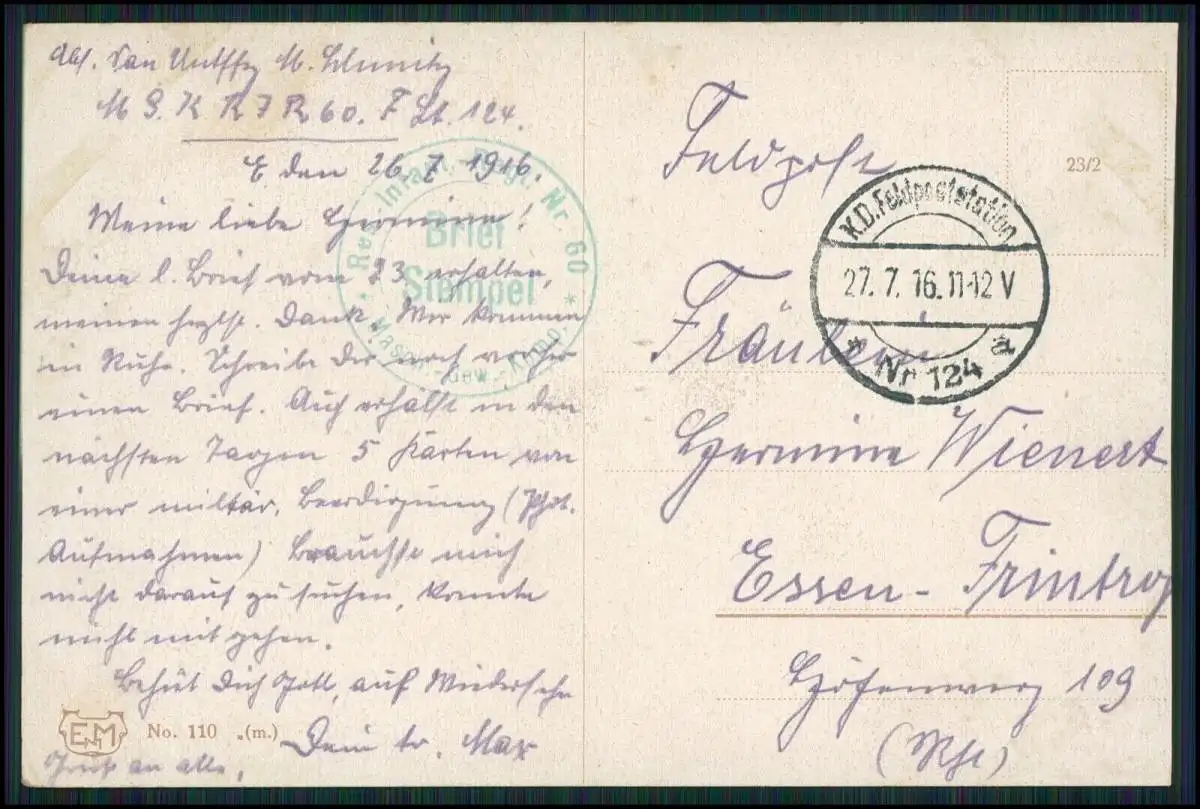 Abs. San Untffz M. Schmitz
M G. K R I R 60. F St. 124.
E den 26 7 1916.
Meine liebe Hermine!
Deine l. Brief vom 23 erhalten,
meinen herzlst. Dank. Wir kommen
in Ruhe. Schreibe Dir noch vorher
einen Brief. Auch erhälst in den
nächsten Tagen 5 Karten von
einer militär. Beerdigung (Phot.
Aufnahmen) Brauchst mich
nicht darauf zu suchen, konnte
nicht mit gehen.
Behüt Dich Gott, auf Wiedersehn
Dein tr. Max
Gruß an alle.
EMN
No. 110 (m.)
Res. Infant. Regt. Nr. 60
Brief
Stempel
* Masch.-Gew.-Komp. *
23/2
Feldpost
K.D. Feldpoststation
27. 7. 16. 11-12 V
* Nr 124 a
Fräulein
Hermine Wienert
Essen - Frintrop
Höfenweg 109
(Rhl)